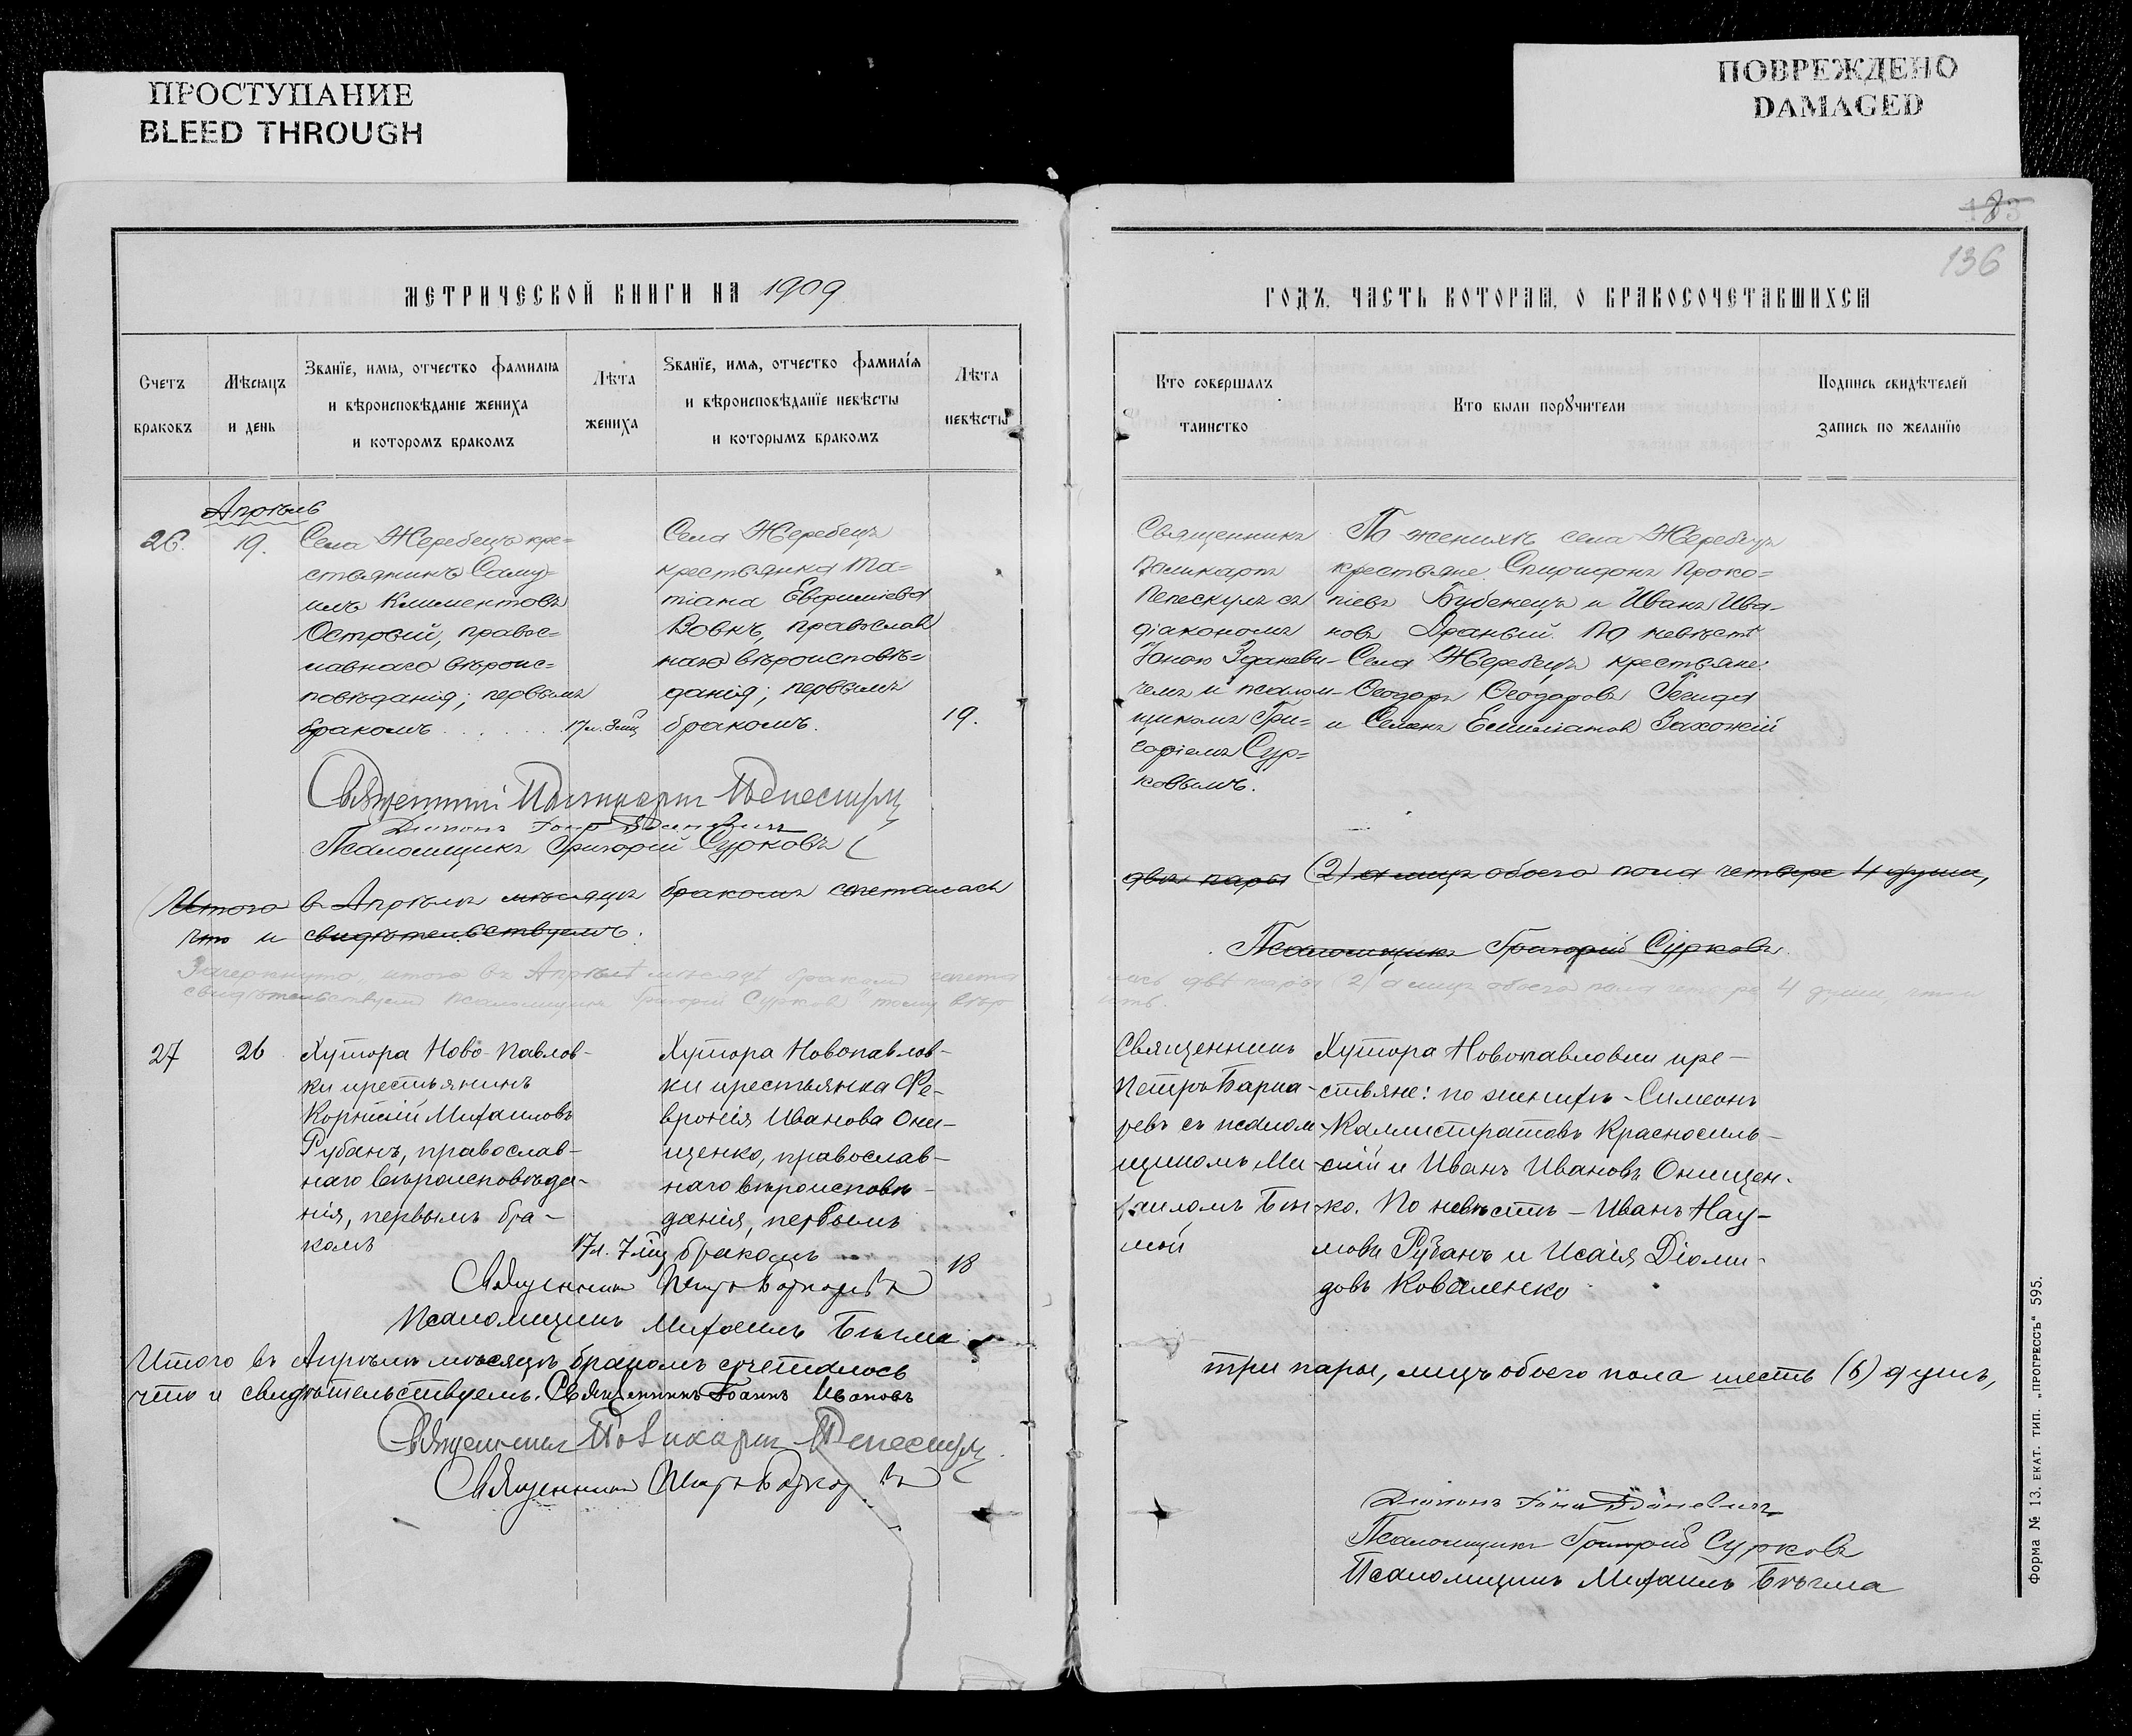 ПРОСТУПАНИЕ
BLEED THROUGH
ПОВРЕЖДЕНО
DAMAGED
136
МЕТРИЧЕСКОЙ КНИГИ НА 1909
ГОДЪ, ЧАСТЬ ВТОРАЯ, О БРАКОСОЧЕТАВШИХСЯ
Счетъ
браковъ
Мѣсяцъ
и день
Званїе, имя, отчество фамилия
и вѣроисповѣданіе жениха
и котoромъ бракомъ
Лѣта
жениха
Званїе, имя, отчество фамилїя
и вѣроисповѣданїе невѣсты
и которымъ бракомъ
Лѣта
невѣсты
Кто совершалъ
таинство
Кто были порꙋчители
Подпись свидѣтелей
запись по желанїю
Апрѣль
26.
19.
Села Жеребецъ кре=
стьянинъ Саму=
илъ Климентовъ
Острый, правос=
лавнаго вѣроис=
повѣданія; первымъ
бракомъ . . . . . .
17 л. 3 мц
Села Жеребецъ
крестьянка Та=
тіана Евфиміева
Вовкъ, православ
наго вѣроисповѣ=
данія; первымъ
бракомъ.
19.
Священникъ
Поликарпъ
Пепескулъ съ
діакономъ
Іоною Зданеви-
чемъ и псалом-
щикомъ Гри=
горіемъ Сур=
ковымъ.
По женихѣ села Жеребецъ
крестьяне Спиридонъ Проко=
піевъ Бубенецъ и Иванъ Ива-
новъ Драный. По невѣстѣ
Села Жеребецъ крестьяне:
Ѳеодоръ Ѳеодоровъ
и Семенъ Захожій
Священникъ Поликарпъ Пепескулъ
Діаконъ Іона Зданевичъ
Псаломщикъ Григорій Сурковъ
Итого въ Апрѣлѣ мѣсяцѣ бракомъ сочеталась
двѣ пары (2) а лицъ обоего пола четверо 4 души,
что и свидѣтельствуемъ:
Псаломщикъ Григорій Сурковъ.
Зачеркнуто „итого въ Апрѣлѣ мѣсяцѣ бракомъ сочета
лась двѣ пары (2) а лицъ обоего пола четверо 4 души, что и
свидѣтельствуемъ Псаломщикъ Григорій Сурковъ" тому вѣр
ить.
27
26
Хутора Ново-Павлов-
ки крестьянинъ
Корнилій Михаиловъ
Рубанъ, православ-
наго вѣроисповѣда-
нія, первымъ бра-
комъ
17 л. 7 мц
Хутора Новопавлов-
ки крестьянка Фе-
вронія Иванова Они-
щенко, православ-
наго вѣроисповѣ-
данія, первымъ
бракомъ
18
Священникъ
Петръ
съ псалом-
щикомъ Ми-
хаиломъ Бѣг-
мой
Хутора Новопавловки кре-
стьяне: по женихѣ - Симеонъ
Каллистратовъ Красносель-
скій и Иванъ Ивановъ Онищен-
ко. По невѣстѣ - Иванъ Нау-
мовъ Рубанъ и Исаія Діоми-
довъ Коваленко
Священникъ Петръ
Псаломщикъ Михаилъ Бѣгма
Итого въ Апрѣлѣ мѣсяцѣ бракомъ сочеталось
три пары, лицъ обоего пола шесть (6) душъ,
что и свидѣтельствуемъ. Священникъ Іоаннъ Ивановъ
Священникъ Поликарпъ Пепескулъ
Священникъ Петръ
Діаконъ Іона Зданевичъ
Псаломщикъ Григорій Сурковъ
Псаломщикъ Михаилъ Бѣгма
Форма № 13. ЕКАТ. ТИП. „ПРОГРЕССЪ" 595.